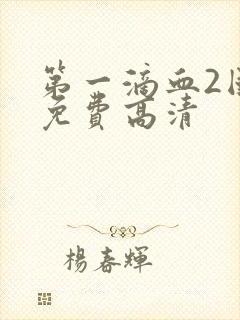 第一滴血2国
免費高清
楊春輝